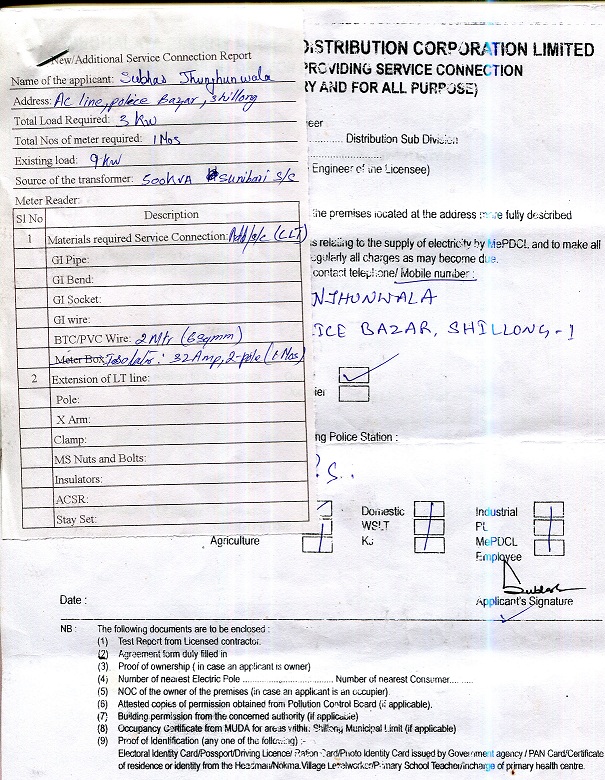 New/Additional Service Connection Report
Name of the applicant: Subhas Jhunjhunwala
Address: AC line, police Bazar, shillong
Total Load Required: 3 KW
Total Nos of meter required: 1 Nos
Existing load: 9 KW
Source of the transformer: 500KVA Sunibari S/C
Meter Reader:
Sl No Description
1 Materials required Service Connection: Add/s/c (CLT)
GI Pipe:
GI Bend:
GI Socket:
GI wire:
BTC/PVC Wire: 2 Mtr (6 sqmm)
Meter Box: Isolator: 32 Amp, 2-pole (1 Nos)
2 Extension of LT line:
Pole:
X Arm:
Clamp:
MS Nuts and Bolts:
Insulators:
ACSR:
Stay Set:
DISTRIBUTION CORPORATION LIMITED
PROVIDING SERVICE CONNECTION
RY AND FOR ALL PURPOSE)
eer
Distribution Sub Division
Engineer of the Licensee)
the premises located at the address more fully described
s relating to the supply of electricity by MePDCL and to make all
gularly all charges as may become due.
contact telephone/ Mobile number :
NJHUNWALA
ICE BAZAR, SHILLONG - 1
ier
ng Police Station :
S.
Domestic Industrial
WSLT PL
Agriculture KJ MePDCL
Employee
Subhash
Date : Applicant's Signature
NB : The following documents are to be enclosed :
(1) Test Report from Licensed contractor.
(2) Agreement form duly filled in
(3) Proof of ownership ( in case an applicant is owner)
(4) Number of nearest Electric Pole .............................. Number of nearest Consumer.... .....
(5) NOC of the owner of the premises (in case an applicant is an occupier).
(6) Attested copies of permission obtained from Pollution Control Board (if applicable).
(7) Building permission from the concerned authority (if applicable)
(8) Occupancy Certificate from MUDA for areas within Shillong Municipal Limit (if applicable)
(9) Proof of Identification (any one of the following) :-
Electoral Identity Card/Passport/Driving Licence/ Ration Card/Photo Identity Card issued by Government agency / PAN Card/Certificate
of residence or identity from the Headman/Nokma.Village Levelworker/Primary School Teacher/Incharge of primary health centre.